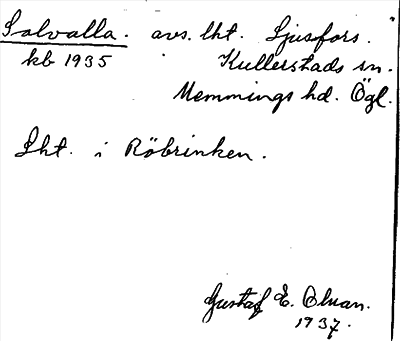 Solvalla. avs. lht. Ljusfors.
kb 1935 Kullerstads sn.
Memmings hd. Ögl.
Lht. i Röbrinken.
Gustaf E. Olman.
1937.